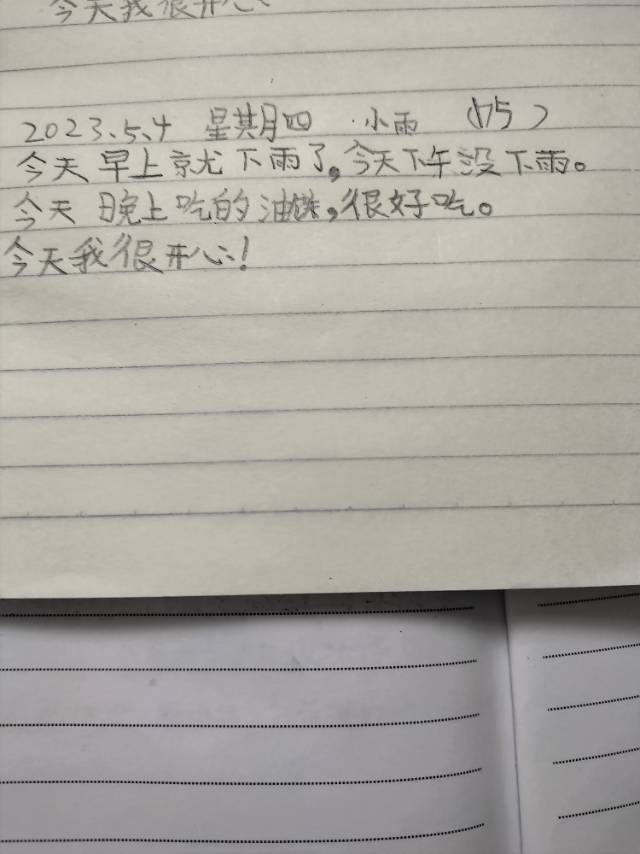 今天我很开心
2023.5.4 星期四 小雨 (175)
今天早上就下雨了,今天下午没下雨。
今天晚上吃的油馍,很好吃。
今天我很开心!